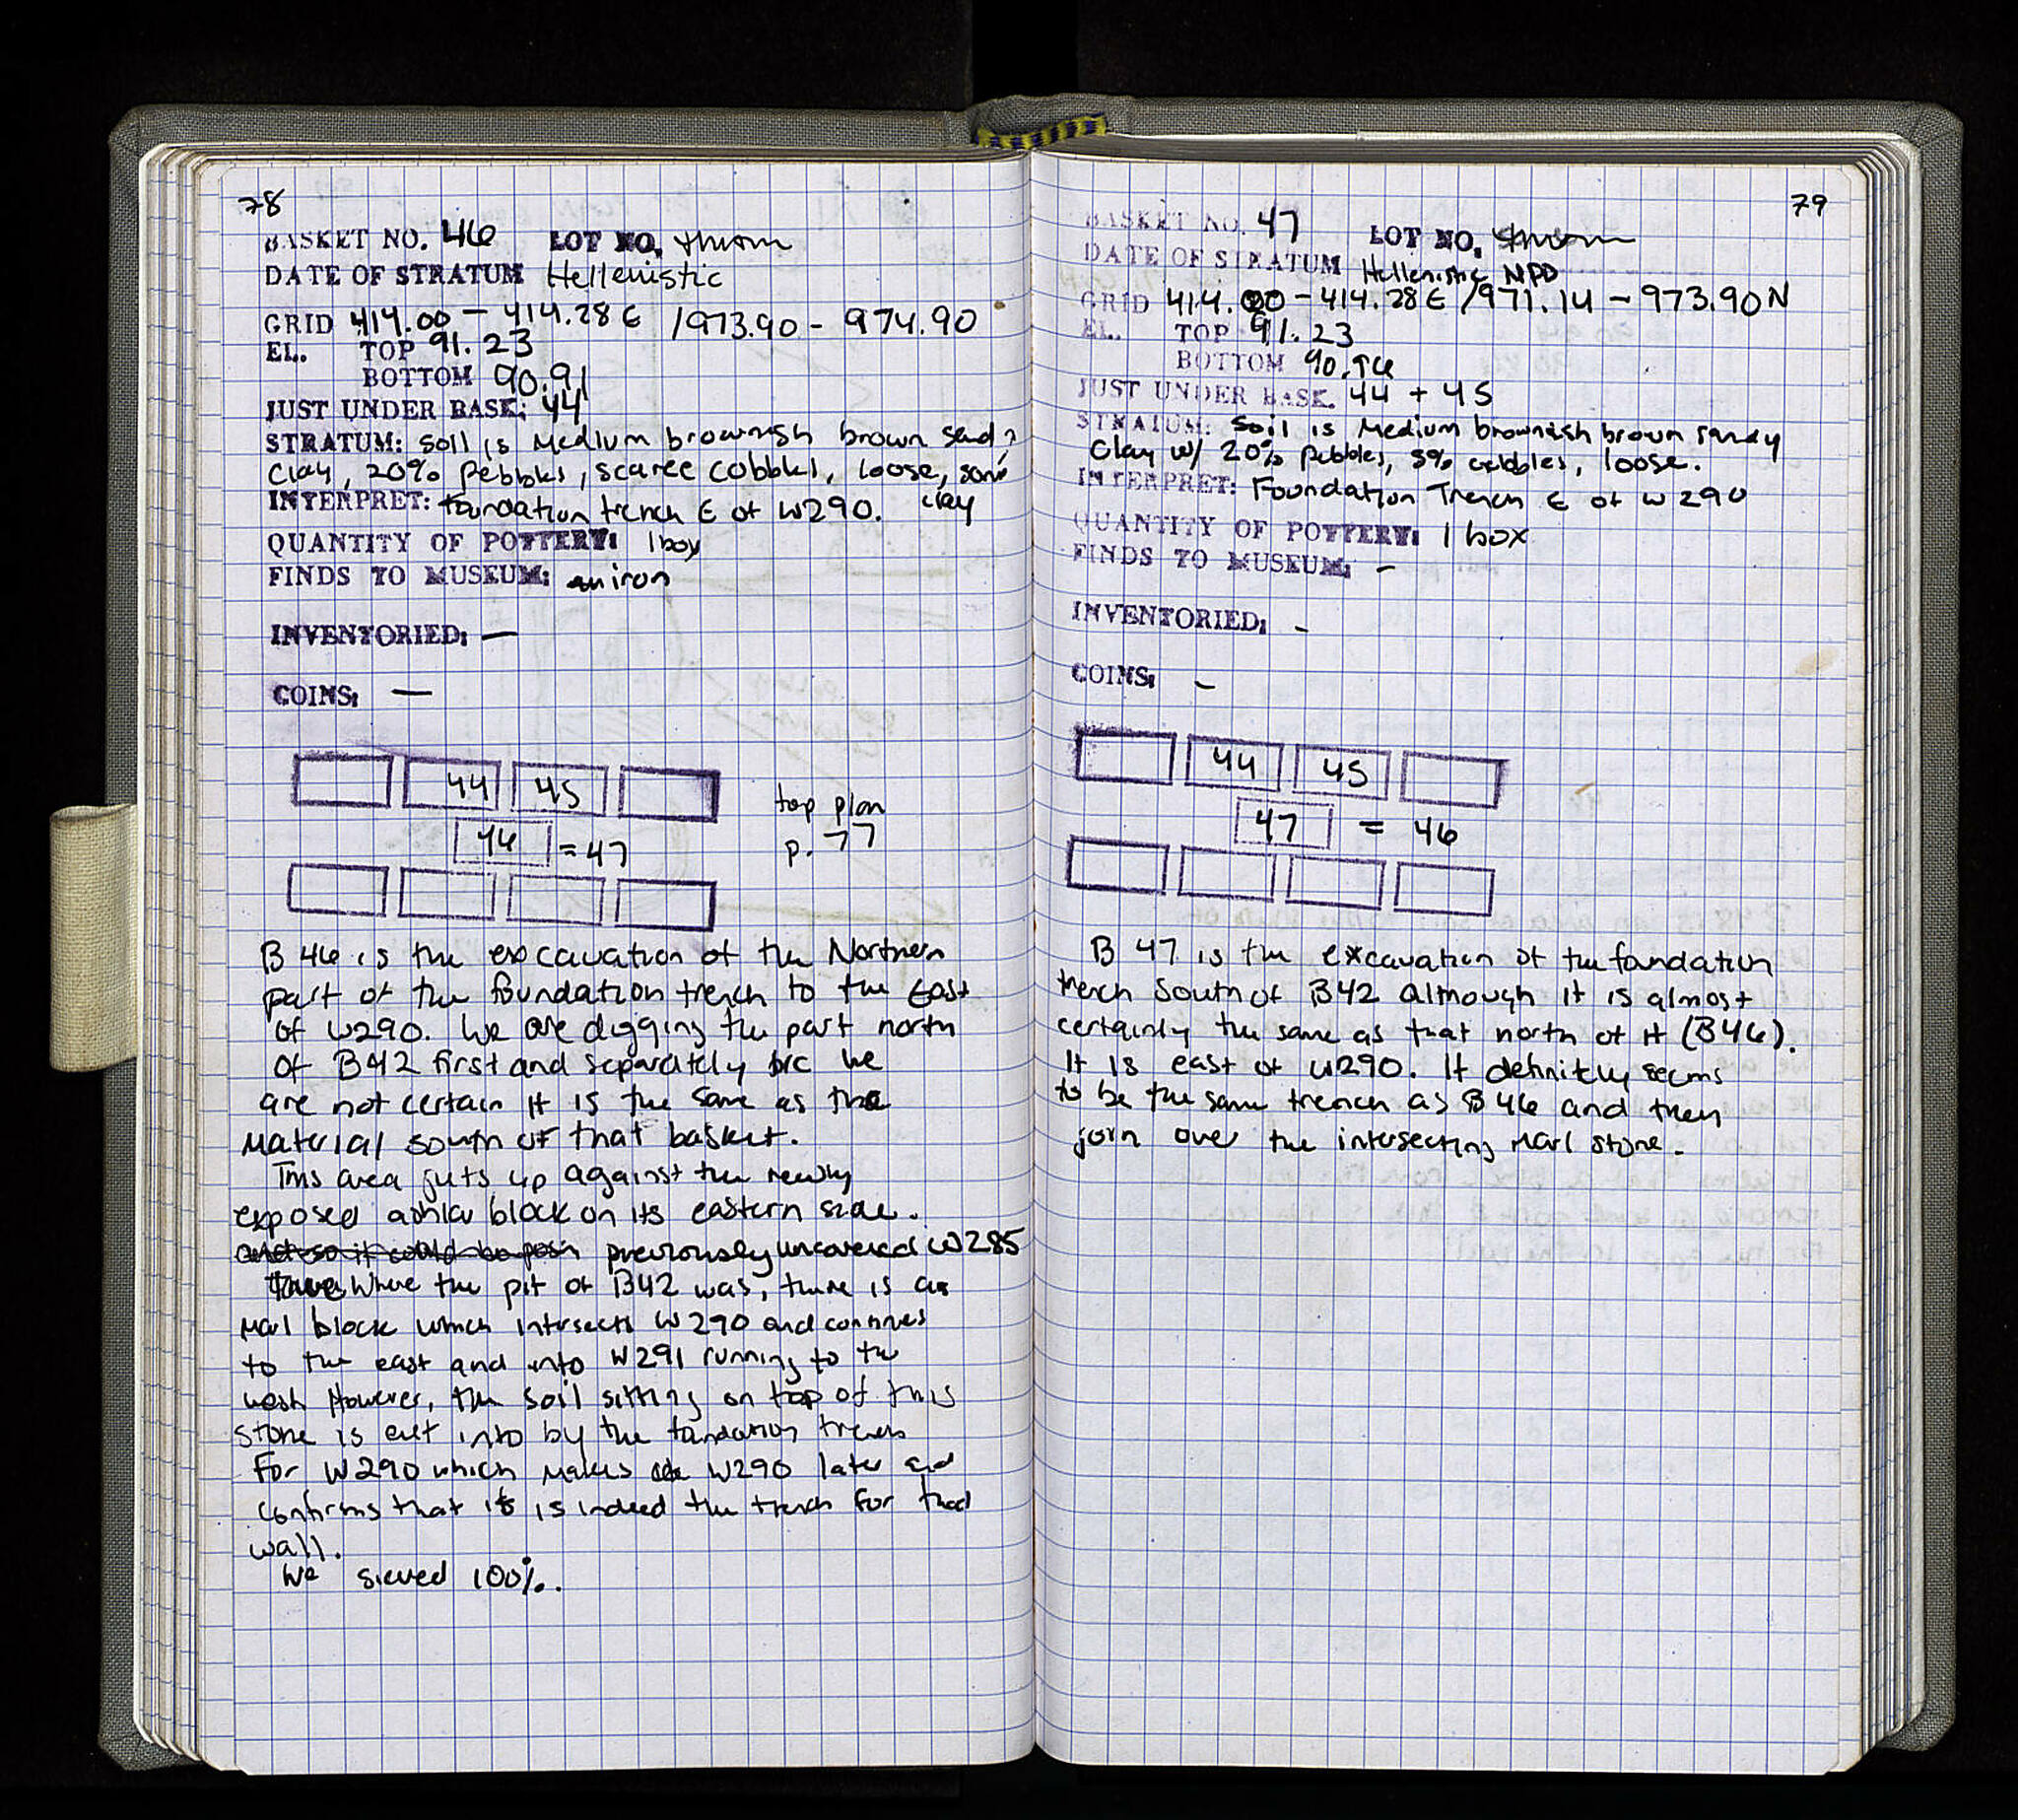 78
BASKET NO. 46 LOT NO. thrown
DATE OF STRATUM Hellenistic
GRID 414.00 - 414.28 E /973.90 - 974.90
EL. TOP 91.23
BOTTOM 90.91
JUST UNDER BASK: 44
STRATUM: soil is Medium brownish brown sandy
clay, 20% pebbles, scarce cobbles, loose, some
clay
INTERPRET: foundation trench E of W290.
QUANTITY OF POTTERY: 1 box
FINDS TO MUSEUM: iron
INVENTORIED: —
COINS: —
44 45
46 = 47
top plan
p. 77
B 46 is the excavation of the Northern
part of the foundation trench to the East
of W290. We are digging the part north
of B42 first and separately b/c we
are not certain it is the same as the
material south of that basket.
This area juts up against the newly
exposed ashlar block on its eastern side.
and so it could be previously uncovered W285
Where the pit of B42 was, there is a
Marl block which intersects W290 and continues
to the east and into W291 running to the
west. However, the soil sitting on top of this
stone is cut into by the foundation trench
For W290 which makes W290 later and
confirms that it is indeed the trench for that
wall.
We sieved 100%.
79
BASKET NO. 47 LOT NO. thrown
DATE OF STRATUM Hellenistic NPD
GRID 414.00 - 414.28 E /971.14 - 973.90 N
EL. TOP 91.23
BOTTOM 90.96
JUST UNDER BASK. 44 + 45
STRATUM: Soil is Medium brownish brown sandy
Clay w/ 20% pebbles, 5% cobbles, loose.
INTERPRET: Foundation Trench E of W290
QUANTITY OF POTTERY: 1 box
FINDS TO MUSEUM: -
INVENTORIED: -
COINS: -
44 45
47 = 46
B 47 is the excavation of the foundation
trench South of B42 although it is almost
certainly the same as that north of it (B46).
It is east of W290. It definitely seems
to be the same trench as B46 and they
join over the intersecting Marl stone.